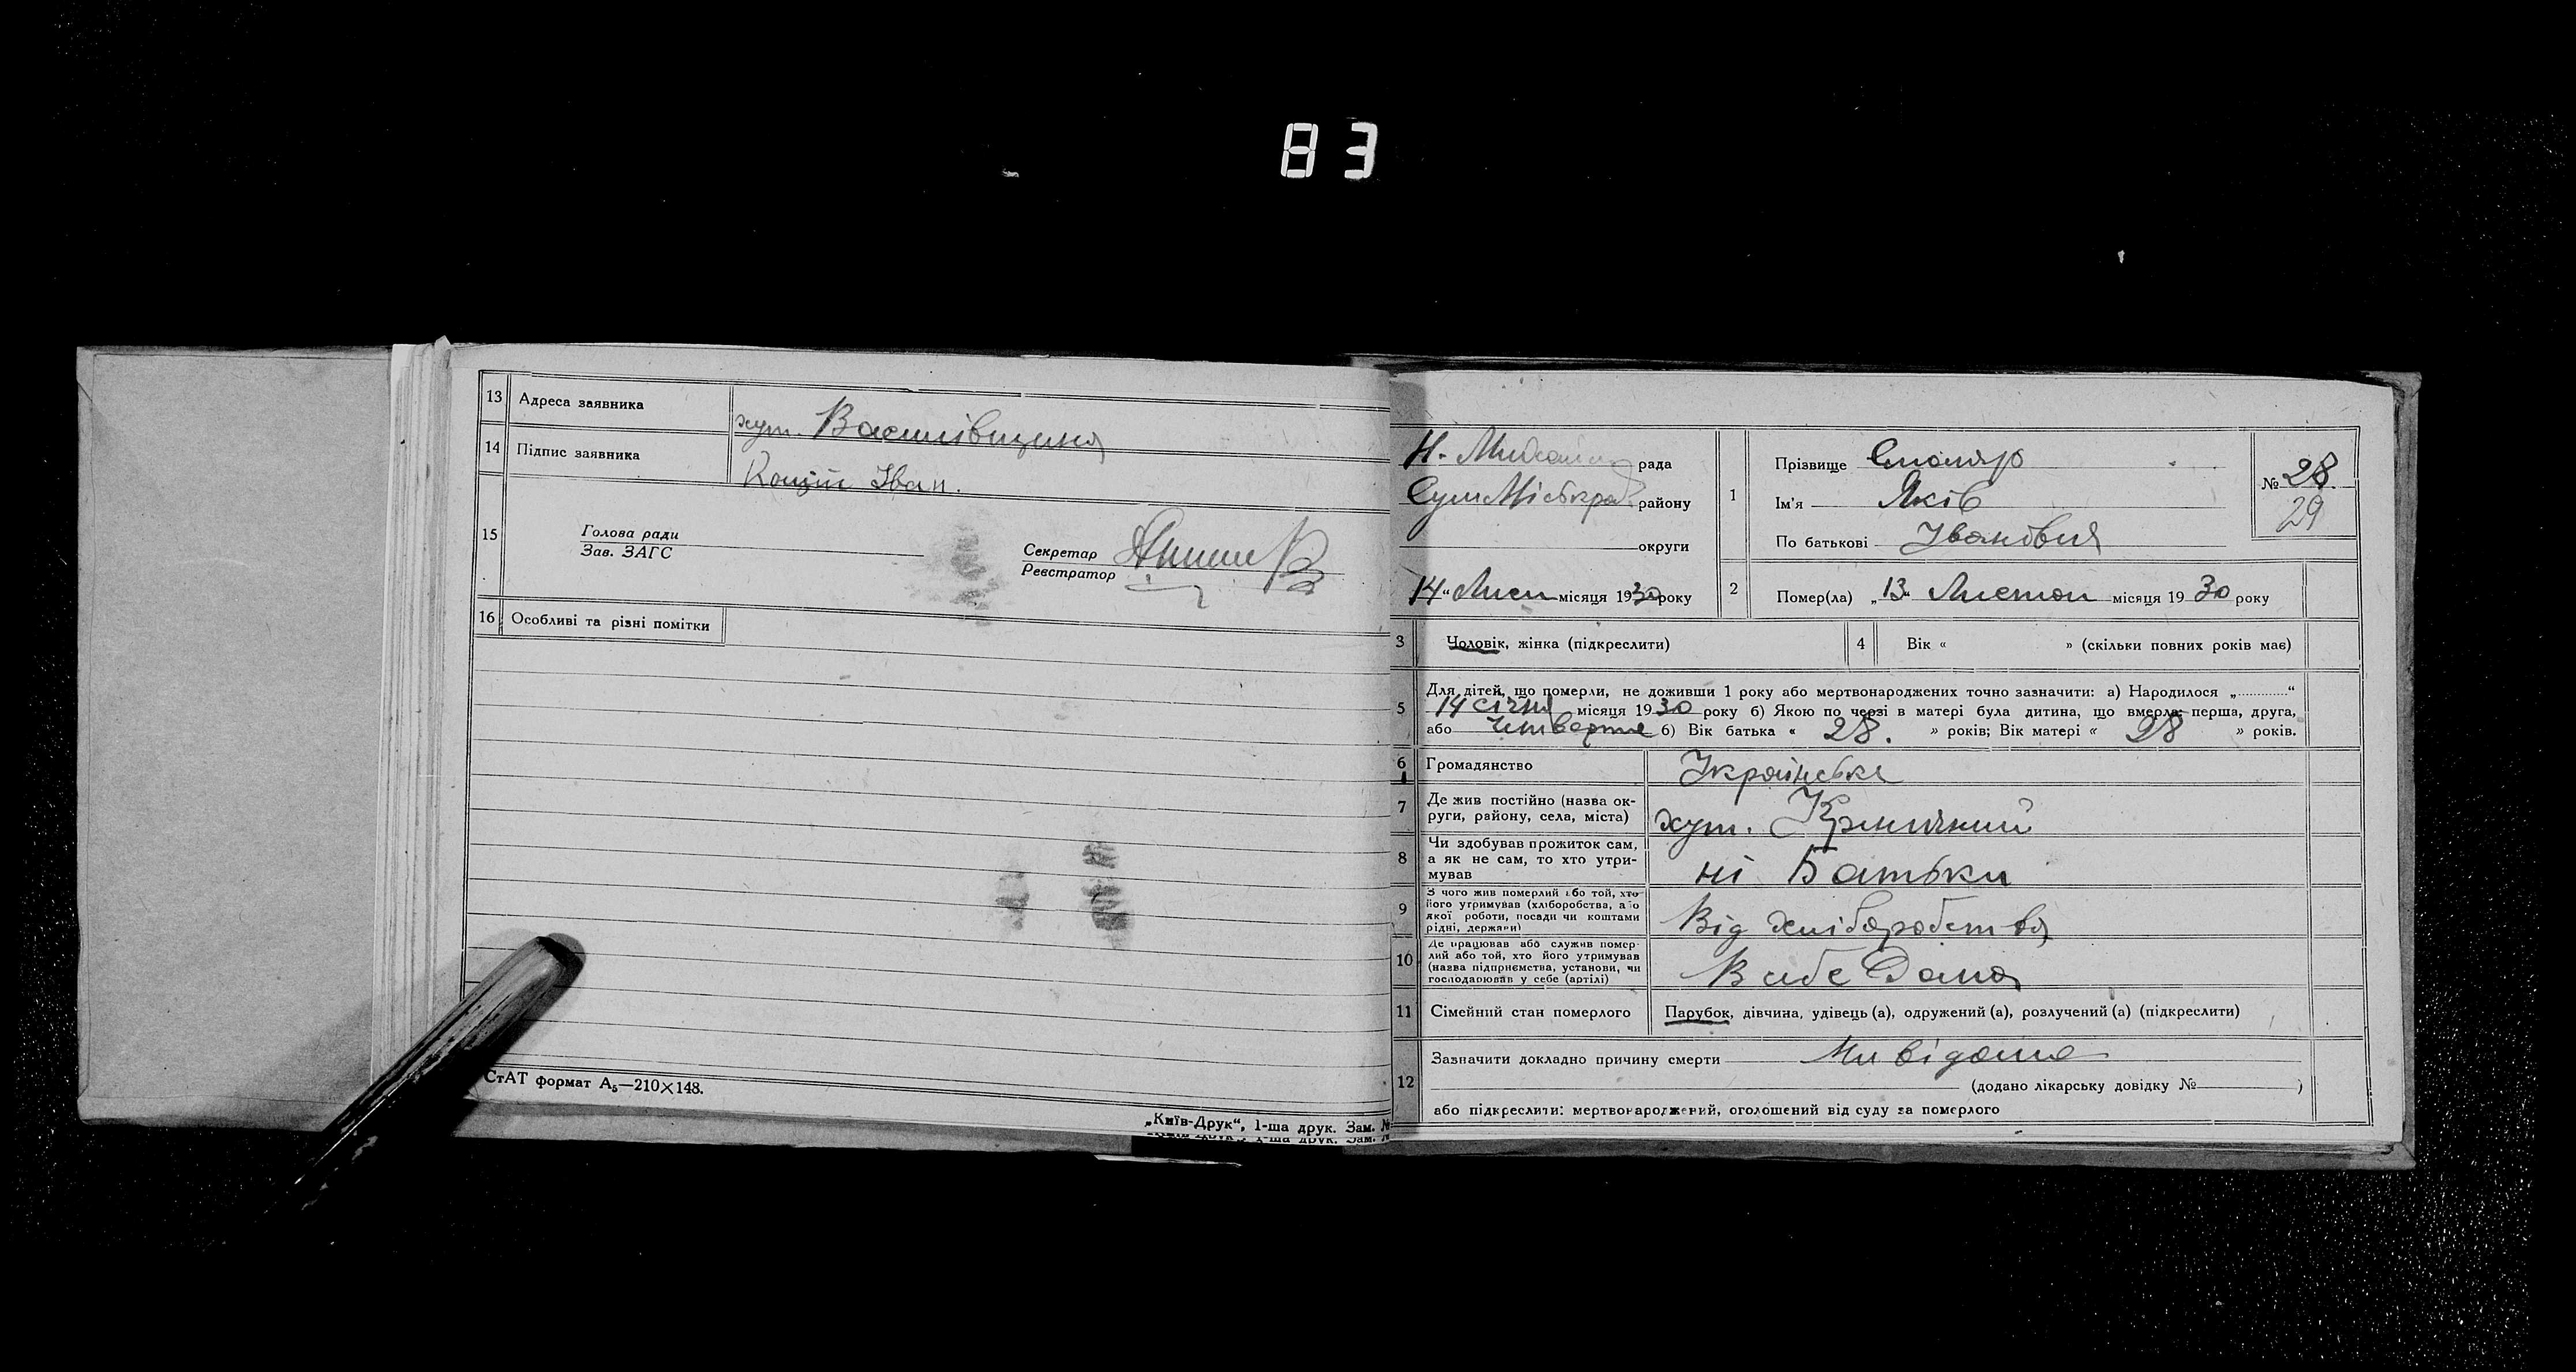 83
13 Адреса заявника хут. Василівщина
14 Підпис заявника Коцій Іван.
15 Голова ради
Зав. ЗАГС
Секретар
Реєстратор
16 Особливі та різні помітки
СтАТ формат А₅—210×148.
„Київ-Друк“, 1-ша друк. Зам. №
Н. рада
району
округи
14 “ Лист місяця 1930 року
1 Прізвище Столяр
Ім'я Яків
По батькові Іванович
№ 28.
29
2 Помер(ла) „13“ Листоп місяця 1930 року
3 Чоловік, жінка (підкреслити)
4 Вік « » (скільки повних років має)
5 Для дітей, що померли, не доживши 1 року або мертвонароджених точно зазначити: а) Народилося „............“
14 січня місяця 1930 року б) Якою по черзі в матері була дитина, що вмерла: перша, друга,
або четверте б) Вік батька « 28. » років; Вік матері « 28 » років.
6 Громадянство Українське
7 Де жив постійно (назва ок-
руги, району, села, міста) хут. Криничний
8 Чи здобував прожиток сам,
а як не сам, то хто утри-
мував ні Батьки
9 З чого жив померлий або той, хто
його утримував (хліборобства, або
якої роботи, посади чи коштами
рідні, держави) Від хліборобства
10 Де працював або служив помер-
лий або той, хто його утримував
(назва підприємства, установи, чи
господарював у себе (артілі) В себе Дома
11 Сімейний стан померлого Парубок, дівчина, удівець (а), одружений (а), розлучений (а) (підкреслити)
12 Зазначити докладно причину смерти Ни відома
(додано лікарську довідку № )
або підкреслити: мертвонароджений, оголошений від суду за померлого